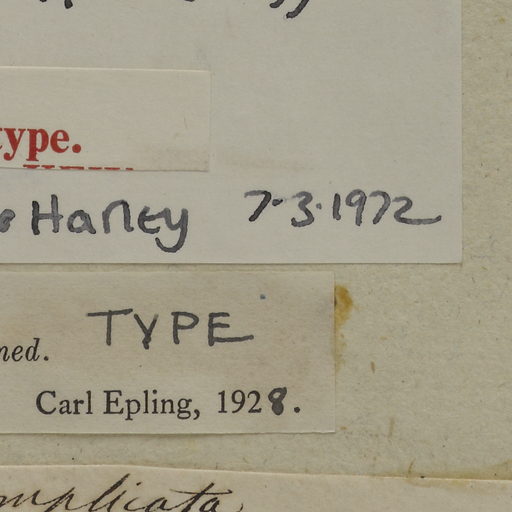 type.
Harley 7·3·1972
TYPE
ned.
Carl Epling, 1928.
mplicata